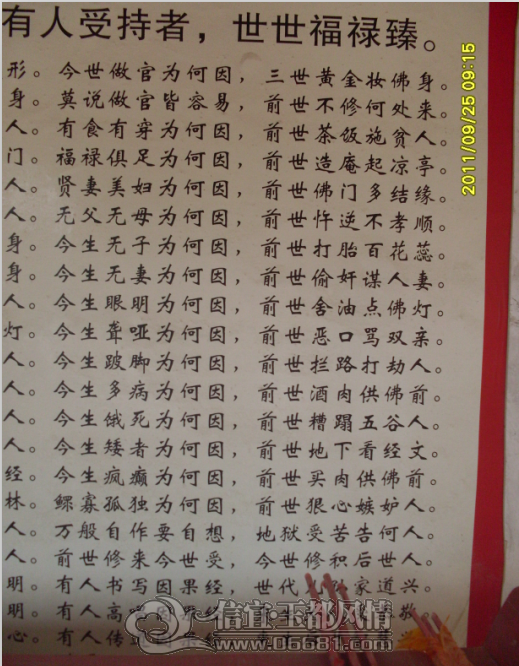 有人受持者，世世福禄臻。
形。今世做官为何因，三世黄金妆佛身。
身。莫说做官皆容易，前世不修何处来。
人。有食有穿为何因，前世茶饭施贫人。
门。福禄俱足为何因，前世造庵起凉亭。
人。贤妻美妇为何因，前世佛门多结缘。
人。无父无母为何因，前世忤逆不孝顺。
身。今生无子为何因，前世打胎百花蕊。
身。今生无妻为何因，前世偷奸谋人妻。
人。今生眼明为何因，前世舍油点佛灯。
灯。今生聋哑为何因，前世恶口骂双亲。
人。今生跛脚为何因，前世拦路打劫人。
人。今生多病为何因，前世酒肉供佛前。
人。今生饿死为何因，前世糟蹋五谷人。
人。今生矮者为何因，前世地下看经文。
经。今生疯癫为何因，前世买肉供佛前。
林。鳏寡孤独为何因，前世狠心嫉妒人。
人。万般自作要自想，地狱受苦告何人。
人。前世修来今世受，今世修积后世人。
明。有人书写因果经，世代 家道兴。
明。有人高 生 敬。
心。有人传
2011/09/25 09:15
信宜·玉都风情
www.06681.com